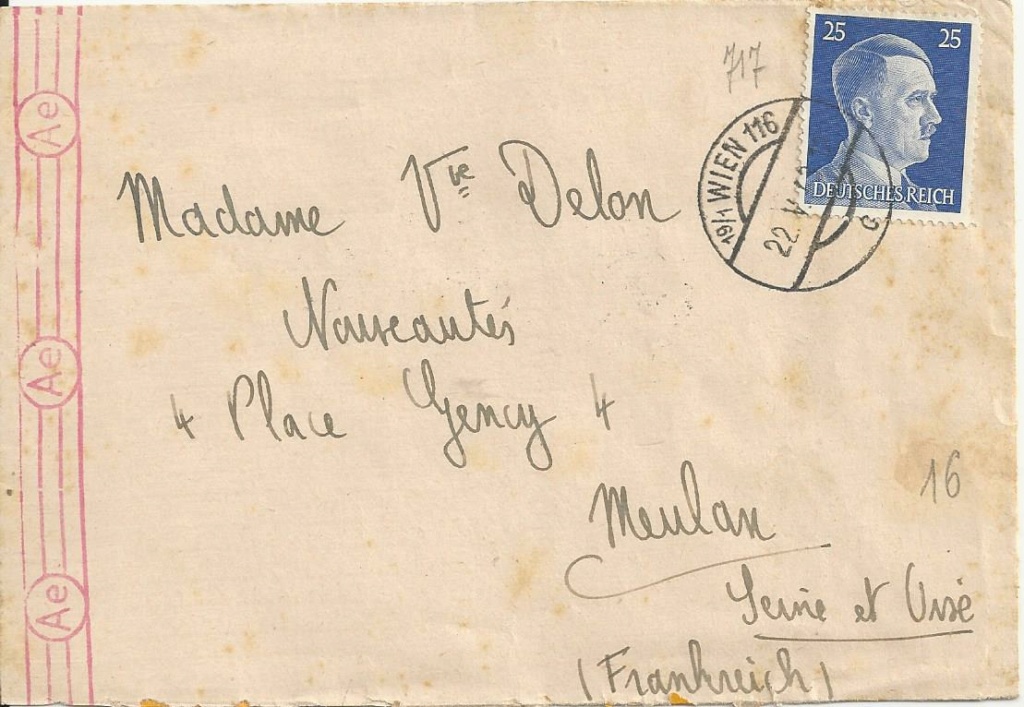 717
25 25
DEUTSCHES REICH
19/1 WIEN 116
22. V
Madame Vve Delon
Nouveautés
4 Place Gency 4
Meulan
16
Seine et Oise
(Frankreich)
Ae
Ae
Ae